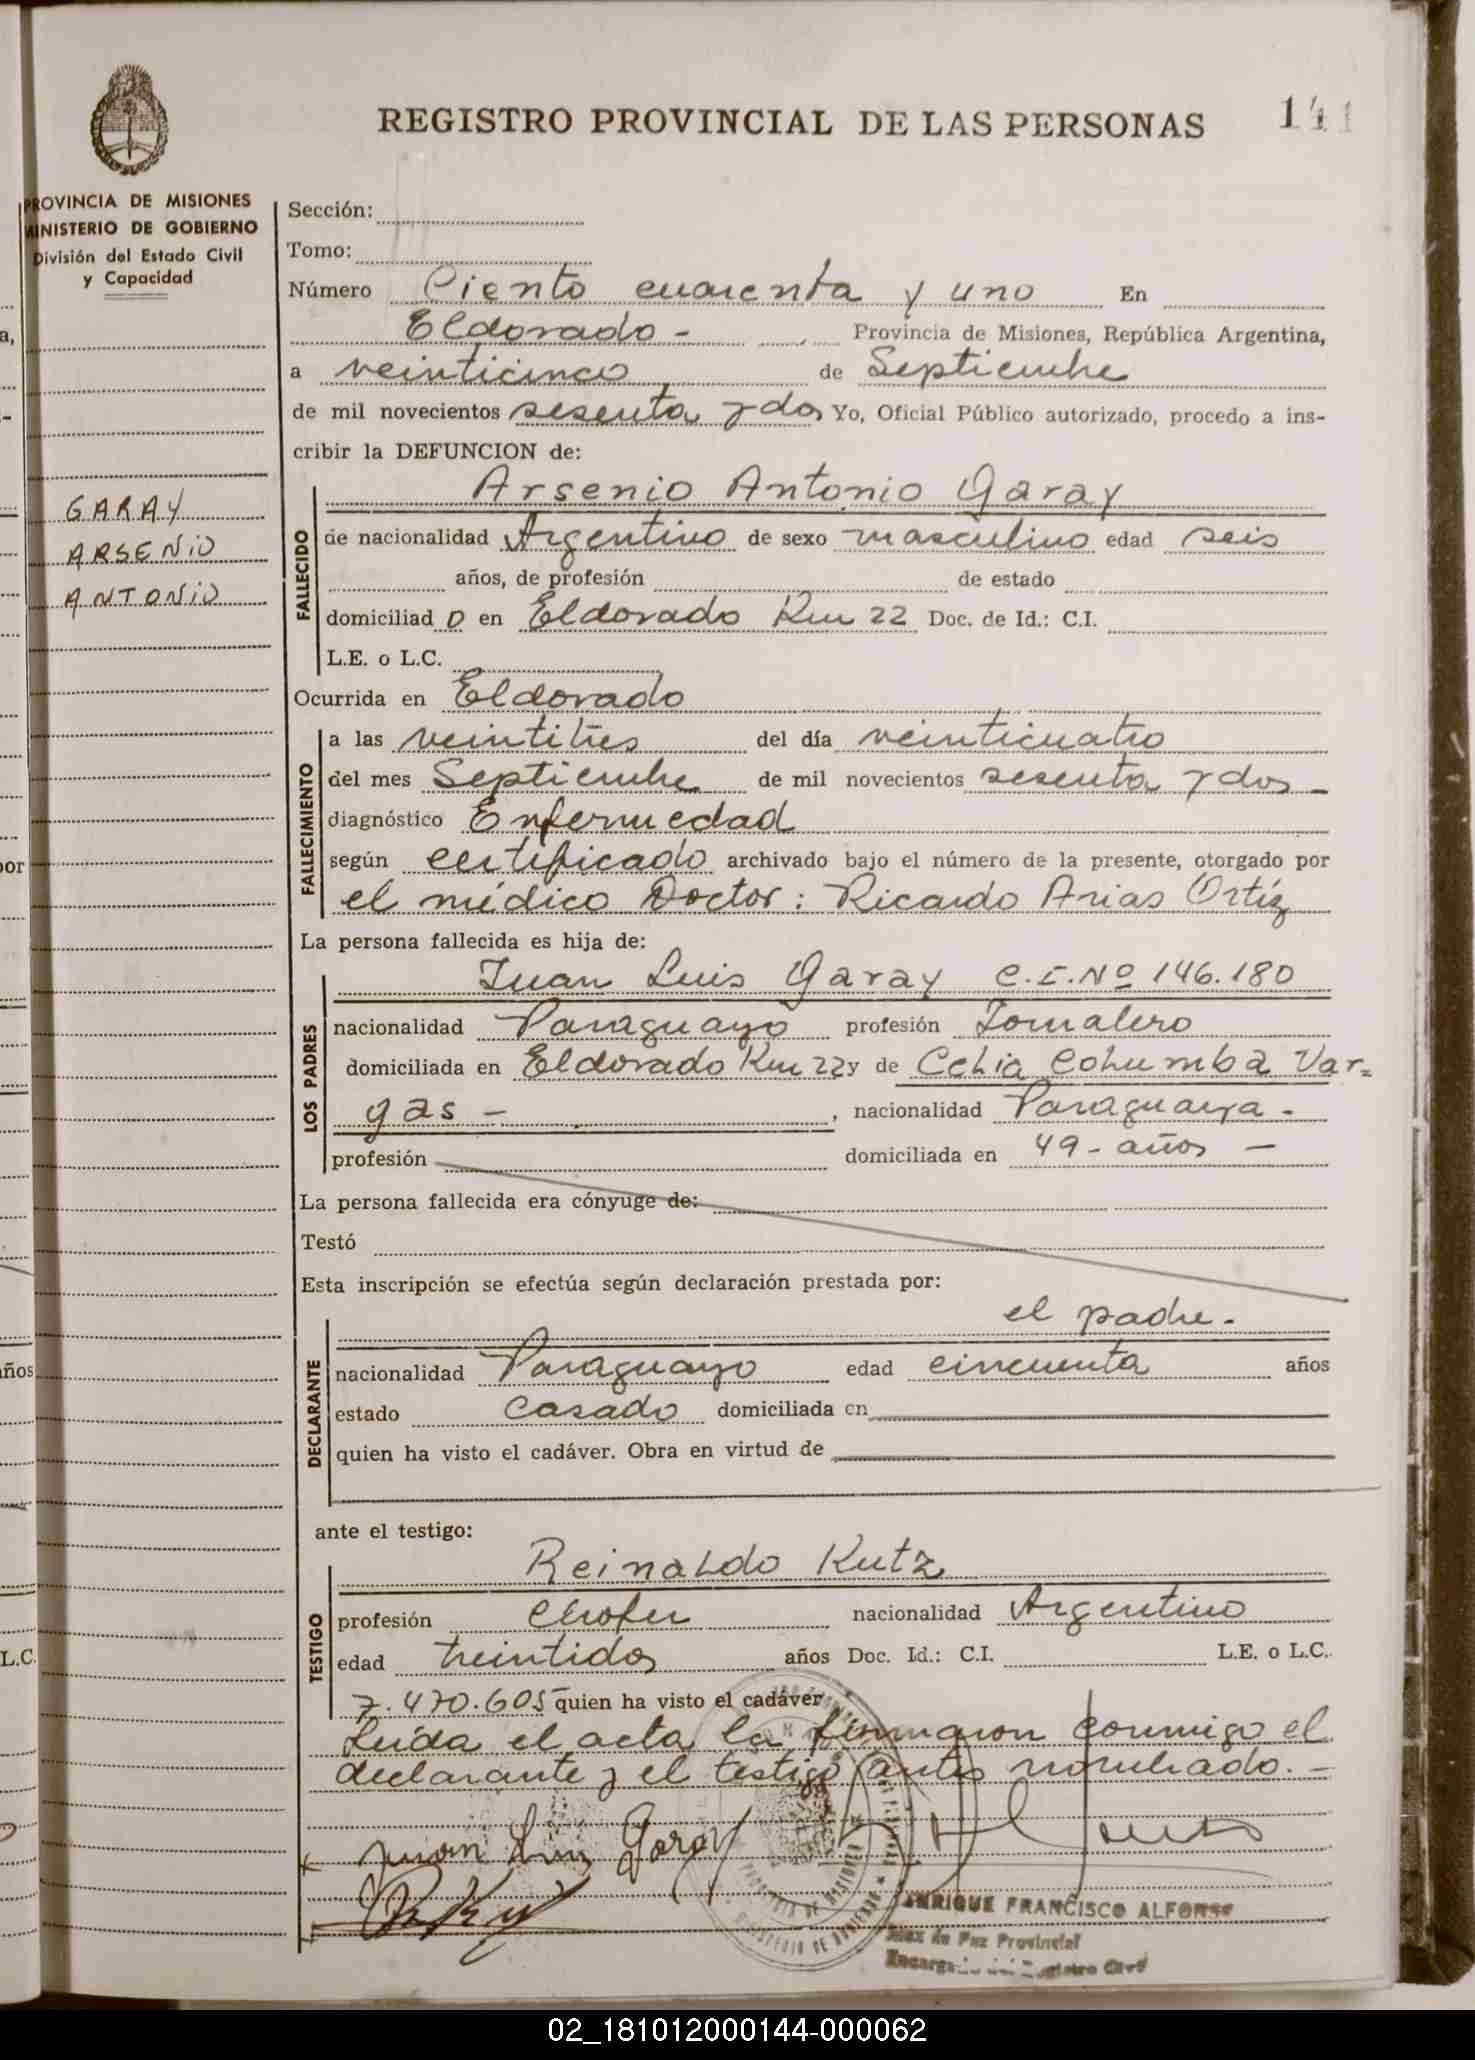 REGISTRO PROVINCIAL DE LAS PERSONAS
141
PROVINCIA DE MISIONES
MINISTERIO DE GOBIERNO
División del Estado Civil
y Capacidad
GARAY
ARSENIO
ANTONIO
Sección:
Tomo:
Número Ciento cuarenta y uno En
Eldorado - Provincia de Misiones, República Argentina,
a veinticinco de Septiembre
de mil novecientos sesenta y dos Yo, Oficial Público autorizado, procedo a ins-
cribir la DEFUNCION de:
FALLECIDO
Arsenio Antonio Garay
de nacionalidad Argentino de sexo masculino edad seis
años, de profesión de estado
domiciliad o en Eldorado Km 22 Doc. de Id.: C.I.
L.E. o L.C.
Ocurrida en Eldorado
FALLECIMIENTO
a las veintitres del día veinticuatro
del mes Septiembre de mil novecientos sesenta y dos -
diagnóstico Enfermedad
según certificado archivado bajo el número de la presente, otorgado por
el médico Doctor: Ricardo Arias Ortíz
La persona fallecida es hija de:
LOS PADRES
Juan Luis Garay C.I. Nº 146.180
nacionalidad Paraguayo profesión Jornalero
domiciliada en Eldorado Km 22 y de Celia Columba Var=
gas - , nacionalidad Paraguaya -
profesión domiciliada en 49 - años -
La persona fallecida era cónyuge de:
Testó
Esta inscripción se efectúa según declaración prestada por:
DECLARANTE
el padre.
nacionalidad Paraguayo edad cincuenta años
estado Casado domiciliada en
quien ha visto el cadáver. Obra en virtud de
ante el testigo:
TESTIGO
Reinaldo Kutz
profesión Chofer nacionalidad Argentino
edad treintidos años Doc. Id.: C.I. L.E. o L.C.
7.470.605 quien ha visto el cadáver
Leída el acta la firmaron conmigo el
declarante y el testigo antes nombrado. -
Juan Luis Garay
ENRIQUE FRANCISCO ALFONSO
Juez de Paz Provincial
Encargado del Registro Civil
02_181012000144-000062